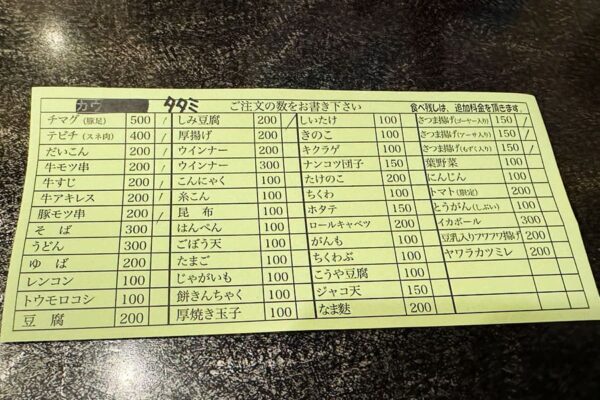 カウ タタミ ご注文の数をお書き下さい 食べ残しは、追加料金を頂きます。
チマグ(豚足) 500 / しみ豆腐 200 / しいたけ 100 さつま揚げ(ゴーヤー入り) 150 /
テビチ(スネ肉) 400 / 厚揚げ 200 きのこ 100 さつま揚げ(アーサ入り) 150 /
だいこん 200 / ウインナー 200 キクラゲ 100 さつま揚げ(もずく入り) 150 /
牛モツ串 200 / ウインナー 300 ナンコツ団子 150 葉野菜 200
牛すじ 200 / こんにゃく 100 たけのこ 200 にんじん 100
牛アキレス 200 / 糸こん 100 ちくわ 100 トマト(限定) 200
豚モツ串 200 / 昆布 100 ホタテ 150 とうがん(しぶい) 100
そば 300 はんぺん 100 ロールキャベツ 200 イカボール 300
うどん 300 ごぼう天 100 がんも 100 豆乳入りフワフワ揚げ 200
ゆば 200 たまご 100 ちくわぶ 100 ヤワラカツミレ 200
レンコン 100 じゃがいも 100 こうや豆腐 100
トウモロコシ 100 餅きんちゃく 100 ジャコ天 150
豆腐 200 厚焼き玉子 100 なま麩 200